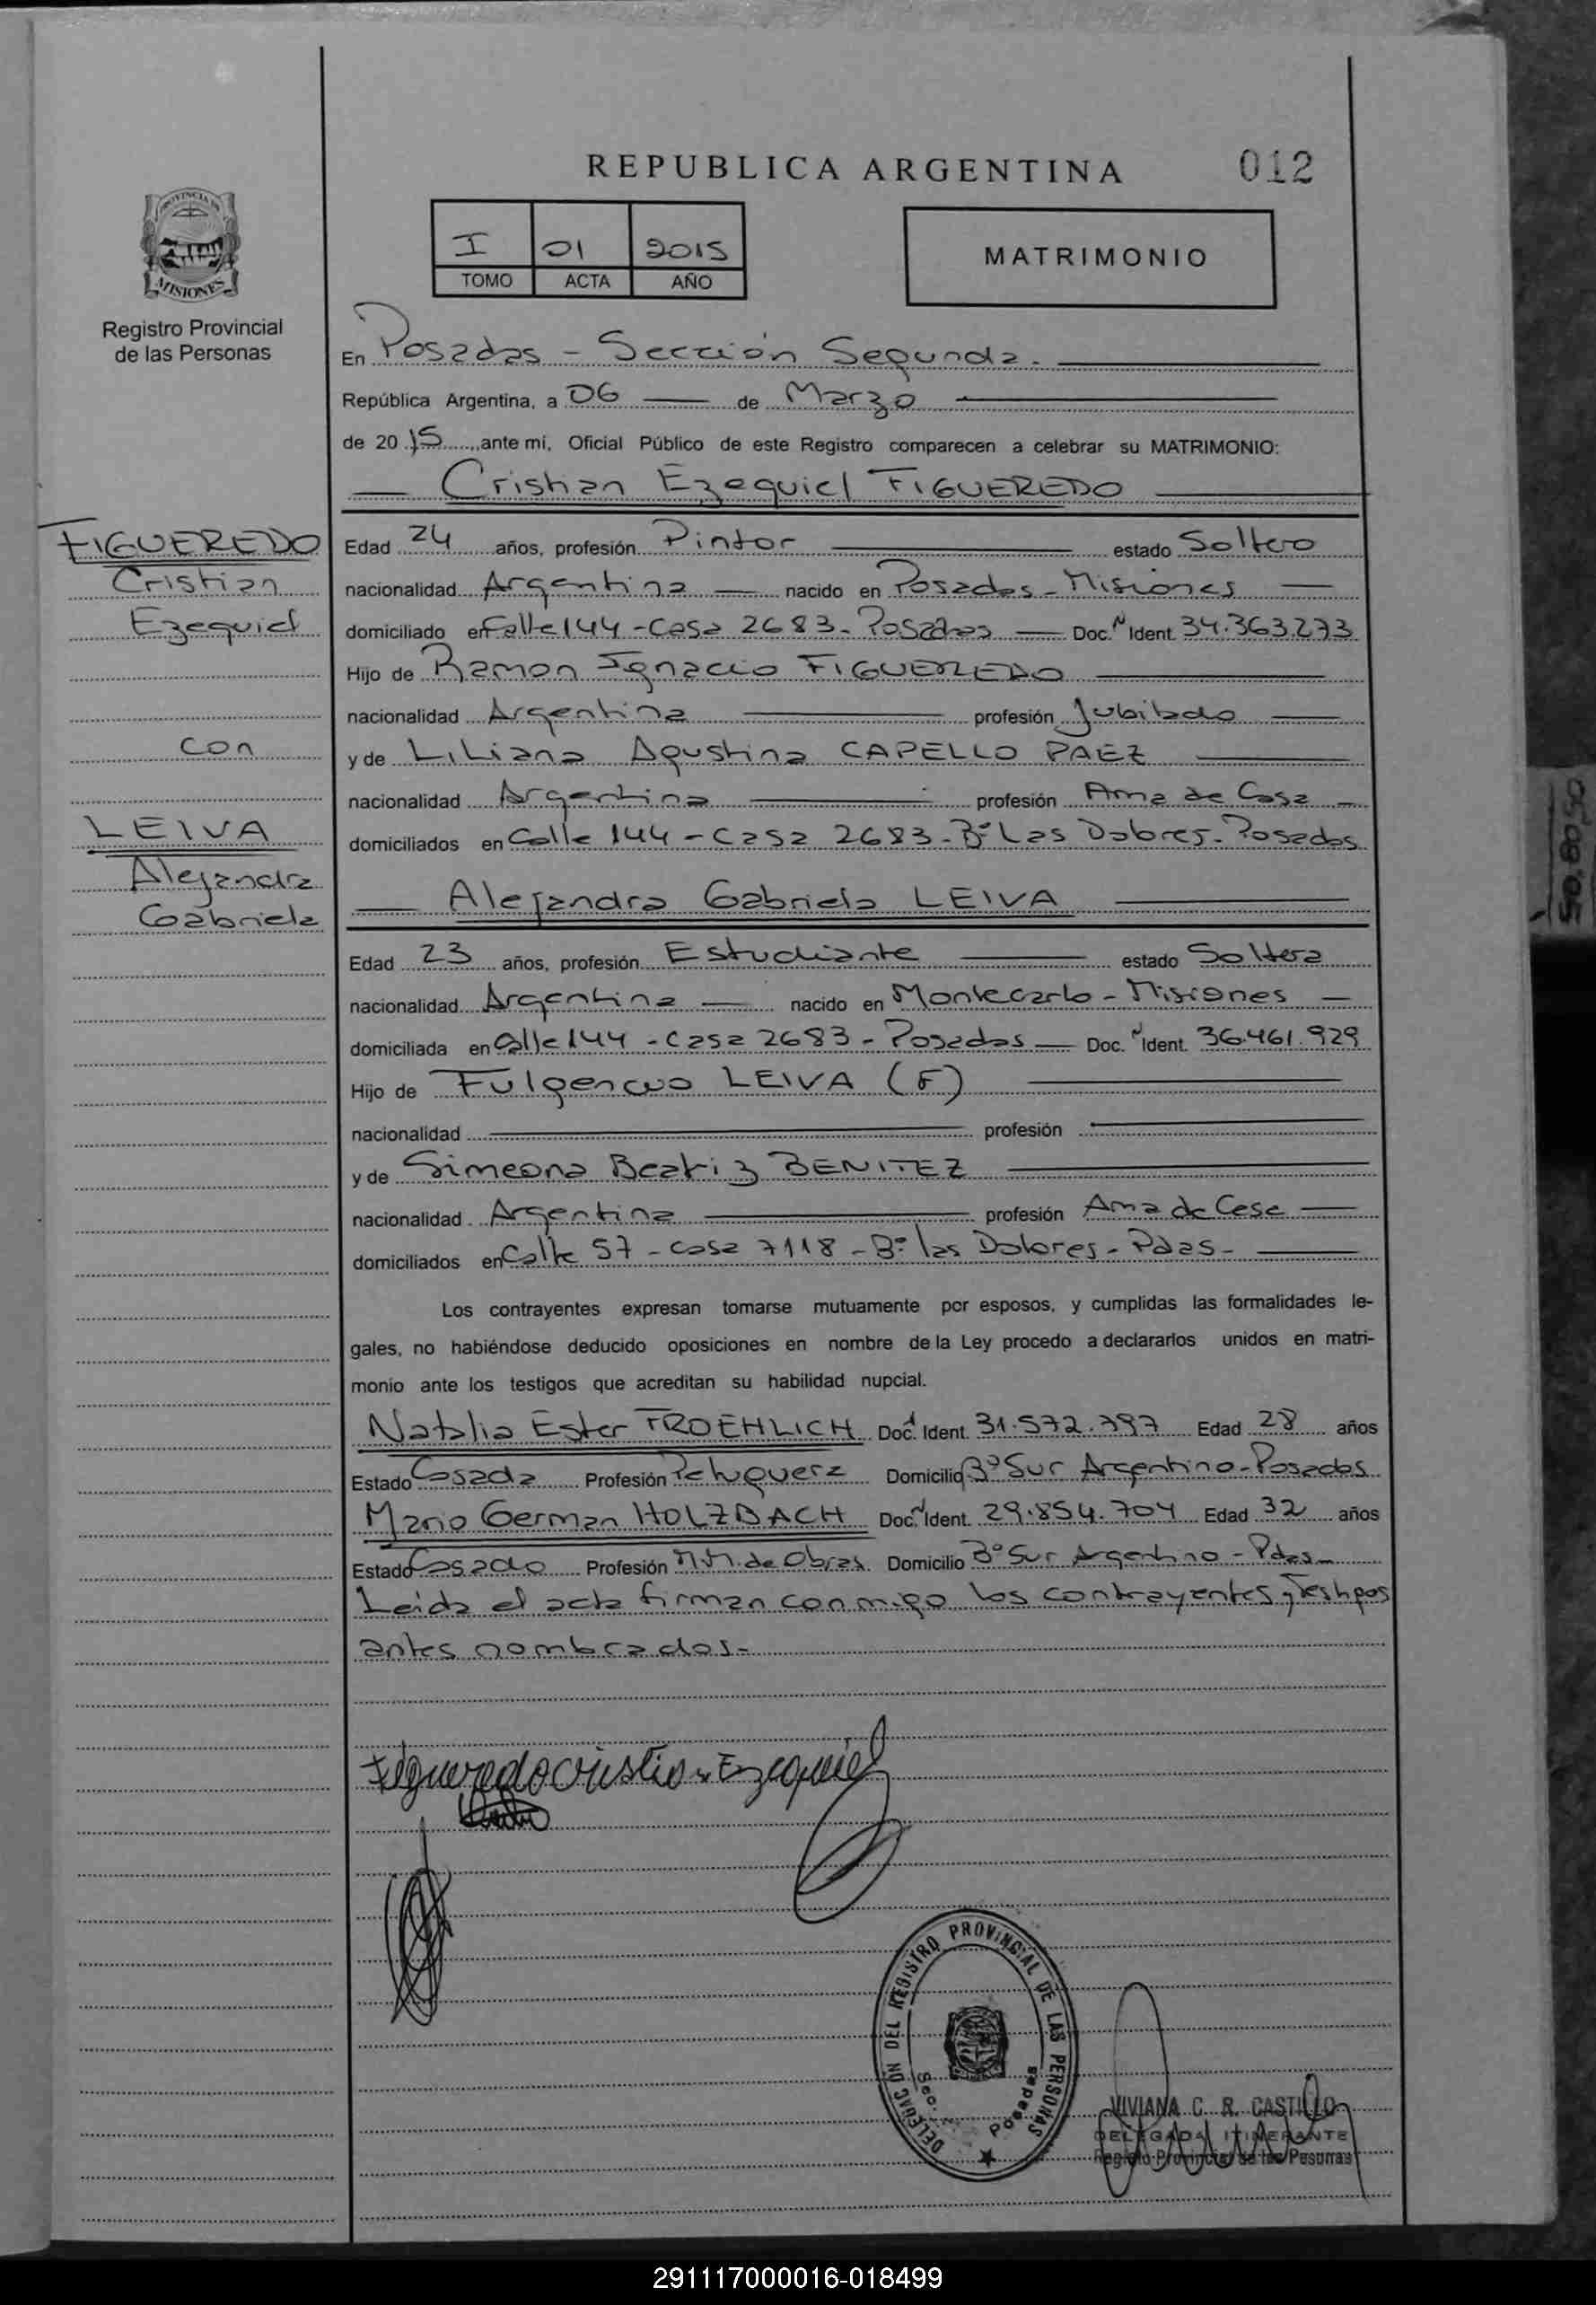 REPUBLICA ARGENTINA
012
PROVINCIA DE
MISIONES
Registro Provincial
de las Personas
I 01 2015
TOMO ACTA AÑO
MATRIMONIO
En Posadas - Sección Segunda.
República Argentina, a 06 de Marzo
de 20 15, ante mí, Oficial Público de este Registro comparecen a celebrar su MATRIMONIO:
Cristian Ezequiel FIGUEREDO
FIGUEREDO
Cristian
Ezequiel
con
LEIVA
Alejandra
Gabriela
Edad 24 años, profesión Pintor estado Soltero
nacionalidad Argentina nacido en Posadas - Misiones
domiciliado en Calle 144 - Casa 2683 - Posadas Doc. N Ident. 34.363.273
Hijo de Ramon Ignacio FIGUEREDO
nacionalidad Argentina profesión Jubilado
y de Liliana Agustina CAPELLO PAEZ
nacionalidad Argentina profesión Ama de Casa
domiciliados en Calle 144 - Casa 2683 - Bº Las Dolores - Posadas
Alejandra Gabriela LEIVA
Edad 23 años, profesión Estudiante estado Soltera
nacionalidad Argentina nacido en Montecarlo - Misiones
domiciliada en Calle 144 - Casa 2683 - Posadas Doc. N Ident. 36.461.929
Hijo de Fulgencio LEIVA (F)
nacionalidad profesión
y de Simeona Beatriz BENITEZ
nacionalidad Argentina profesión Ama de Casa
domiciliados en Calle 57 - Casa 7118 - Bº las Dolores - Pdas -
Los contrayentes expresan tomarse mutuamente por esposos, y cumplidas las formalidades le-
gales, no habiéndose deducido oposiciones en nombre de la Ley procedo a declararlos unidos en matri-
monio ante los testigos que acreditan su habilidad nupcial.
Natalia Ester FROEHLICH Doc. Ident. 31.572.797 Edad 28 años
Estado Casada Profesión Peluquera Domicilio Bº Sur Argentino - Posadas
Mario German HOLZBACH Doc. N Ident. 29.854.704 Edad 32 años
Estado Casado Profesión M.M. de Obras Domicilio Bº Sur Argentino - Pdas -
Leida el acta firman conmigo los contrayentes y Testigos
antes nombrados -
Figueredo Cristian Ezequiel
DELEGACION DEL REGISTRO PROVINCIAL DE LAS PERSONAS
Sec. Posadas
VIVIANA C. R. CASTILLO
DELEGADA ITINERANTE
Registro Provincial de las Personas
291117000016-018499